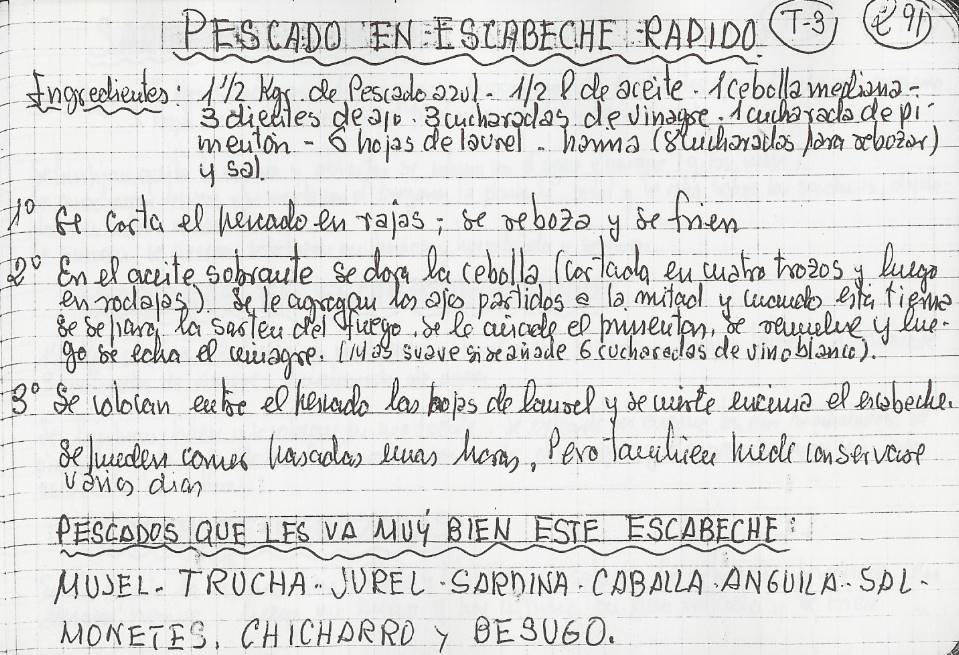 PESCADO EN ESCABECHE RAPIDO. T-3 291
Ingredientes: 1 1/2 Kgr. de Pescado azul - 1/2 l de aceite. 1 cebolla mediana -
3 dientes de ajo. 3 cucharadas de vinagre. 1 cucharada de pi-
mentón - 6 hojas de laurel - harina (8 cucharadas para rebozar)
y sal.
1º Se corta el pescado en rajas; se reboza y se frien
2º En el aceite sobrante se dora la cebolla (cortada en cuatro trozos y luego
en rodajas). Se le agregan los ajos partidos a la mitad y cuando está tierna
se separa la sartén del fuego, se le añade el pimentón, se remuelve y lue-
go se echa el vinagre. (Mas suave si se añade 6 cucharadas de vino blanco).
3º Se colocan entre el pescado las hojas de laurel y se vierte encima el escabeche.
Se pueden comer pasadas unas horas, Pero tambien puede conservarse
varios dias
PESCADOS QUE LES VA MUY BIEN ESTE ESCABECHE:
MUJEL - TRUCHA - JUREL - SARDINA - CABALLA - ANGUILA - SAL-
MONETES, CHICHARRO y BESUGO.